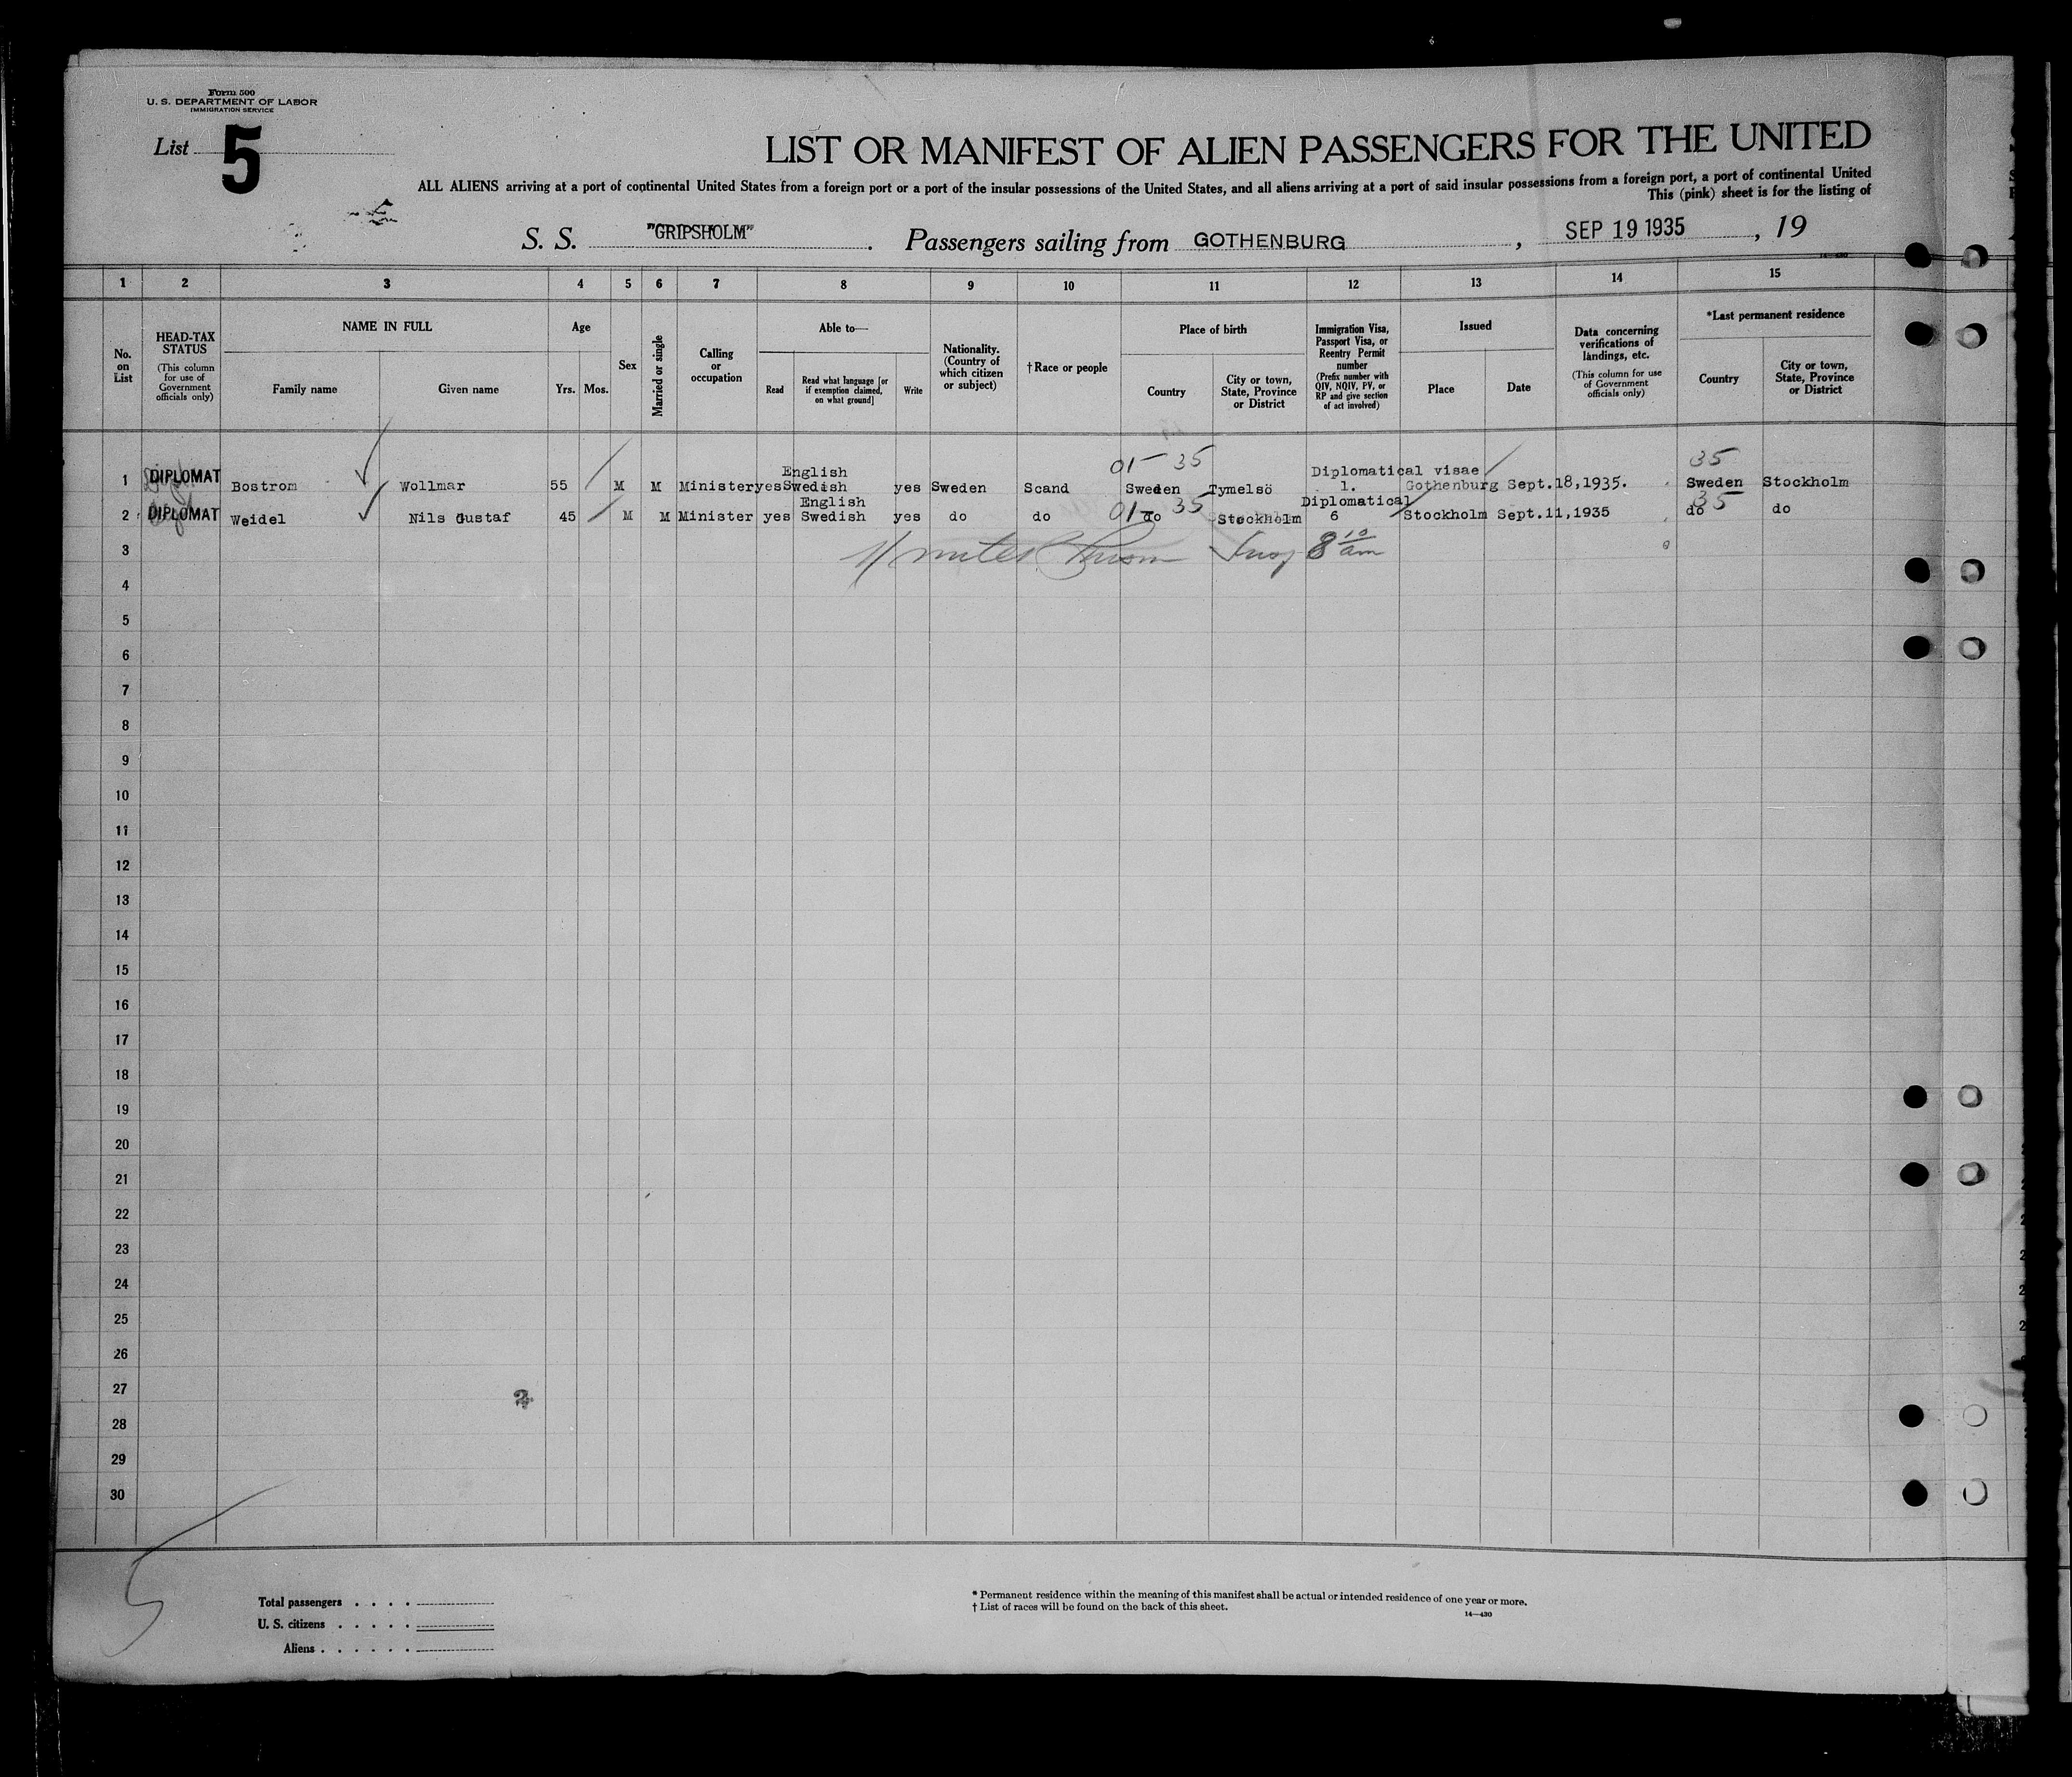 Form 500
U. S. DEPARTMENT OF LABOR
IMMIGRATION SERVICE
List 5
LIST OR MANIFEST OF ALIEN PASSENGERS FOR THE UNITED
ALL ALIENS arriving at a port of continental United States from a foreign port or a port of the insular possessions of the United States, and all aliens arriving at a port of said insular possessions from a foreign port, a port of continental United
This (pink) sheet is for the listing of
S. S. "GRIPSHOLM" . Passengers sailing from GOTHENBURG , SEP 19 1935 , 19
1 2 3 4 5 6 7 8 9 10 11 12 13 14 15
No. on List
HEAD-TAX STATUS
(This column for use of Government officials only)
NAME IN FULL
Family name
Given name
Age
Yrs. Mos.
Sex
Married or single
Calling or occupation
Able to—
Read
Read what language [or if exemption claimed, on what ground]
Write
Nationality. (Country of which citizen or subject)
†Race or people
Place of birth
Country
City or town, State, Province or District
Immigration Visa, Passport Visa, or Reentry Permit number
(Prefix number with QIV, NQIV, PV, or RP and give section of act involved)
Issued
Place
Date
Data concerning verifications of landings, etc.
(This column for use of Government officials only)
*Last permanent residence
Country
City or town, State, Province or District
01- 35 35
English Diplomatical visae
1 DIPLOMAT Bostrom Wollmar 55 M M Minister yes Swedish yes Sweden Scand Sweden Tymelsö 1. Gothenburg Sept.18,1935. Sweden Stockholm
English 01- 35 Diplomatical 35
2 DIPLOMAT Weidel Nils Gustaf 45 M M Minister yes Swedish yes do do do Stockholm 6 Stockholm Sept.11,1935 do do
3 Insp 8 10 am
4
5
6
7
8
9
10
11
12
13
14
15
16
17
18
19
20
21
22
23
24
25
26
27
28
29
30
5
Total passengers . . . .
U. S. citizens . . . . .
Aliens . . . . . .
* Permanent residence within the meaning of this manifest shall be actual or intended residence of one year or more.
† List of races will be found on the back of this sheet.
14—430